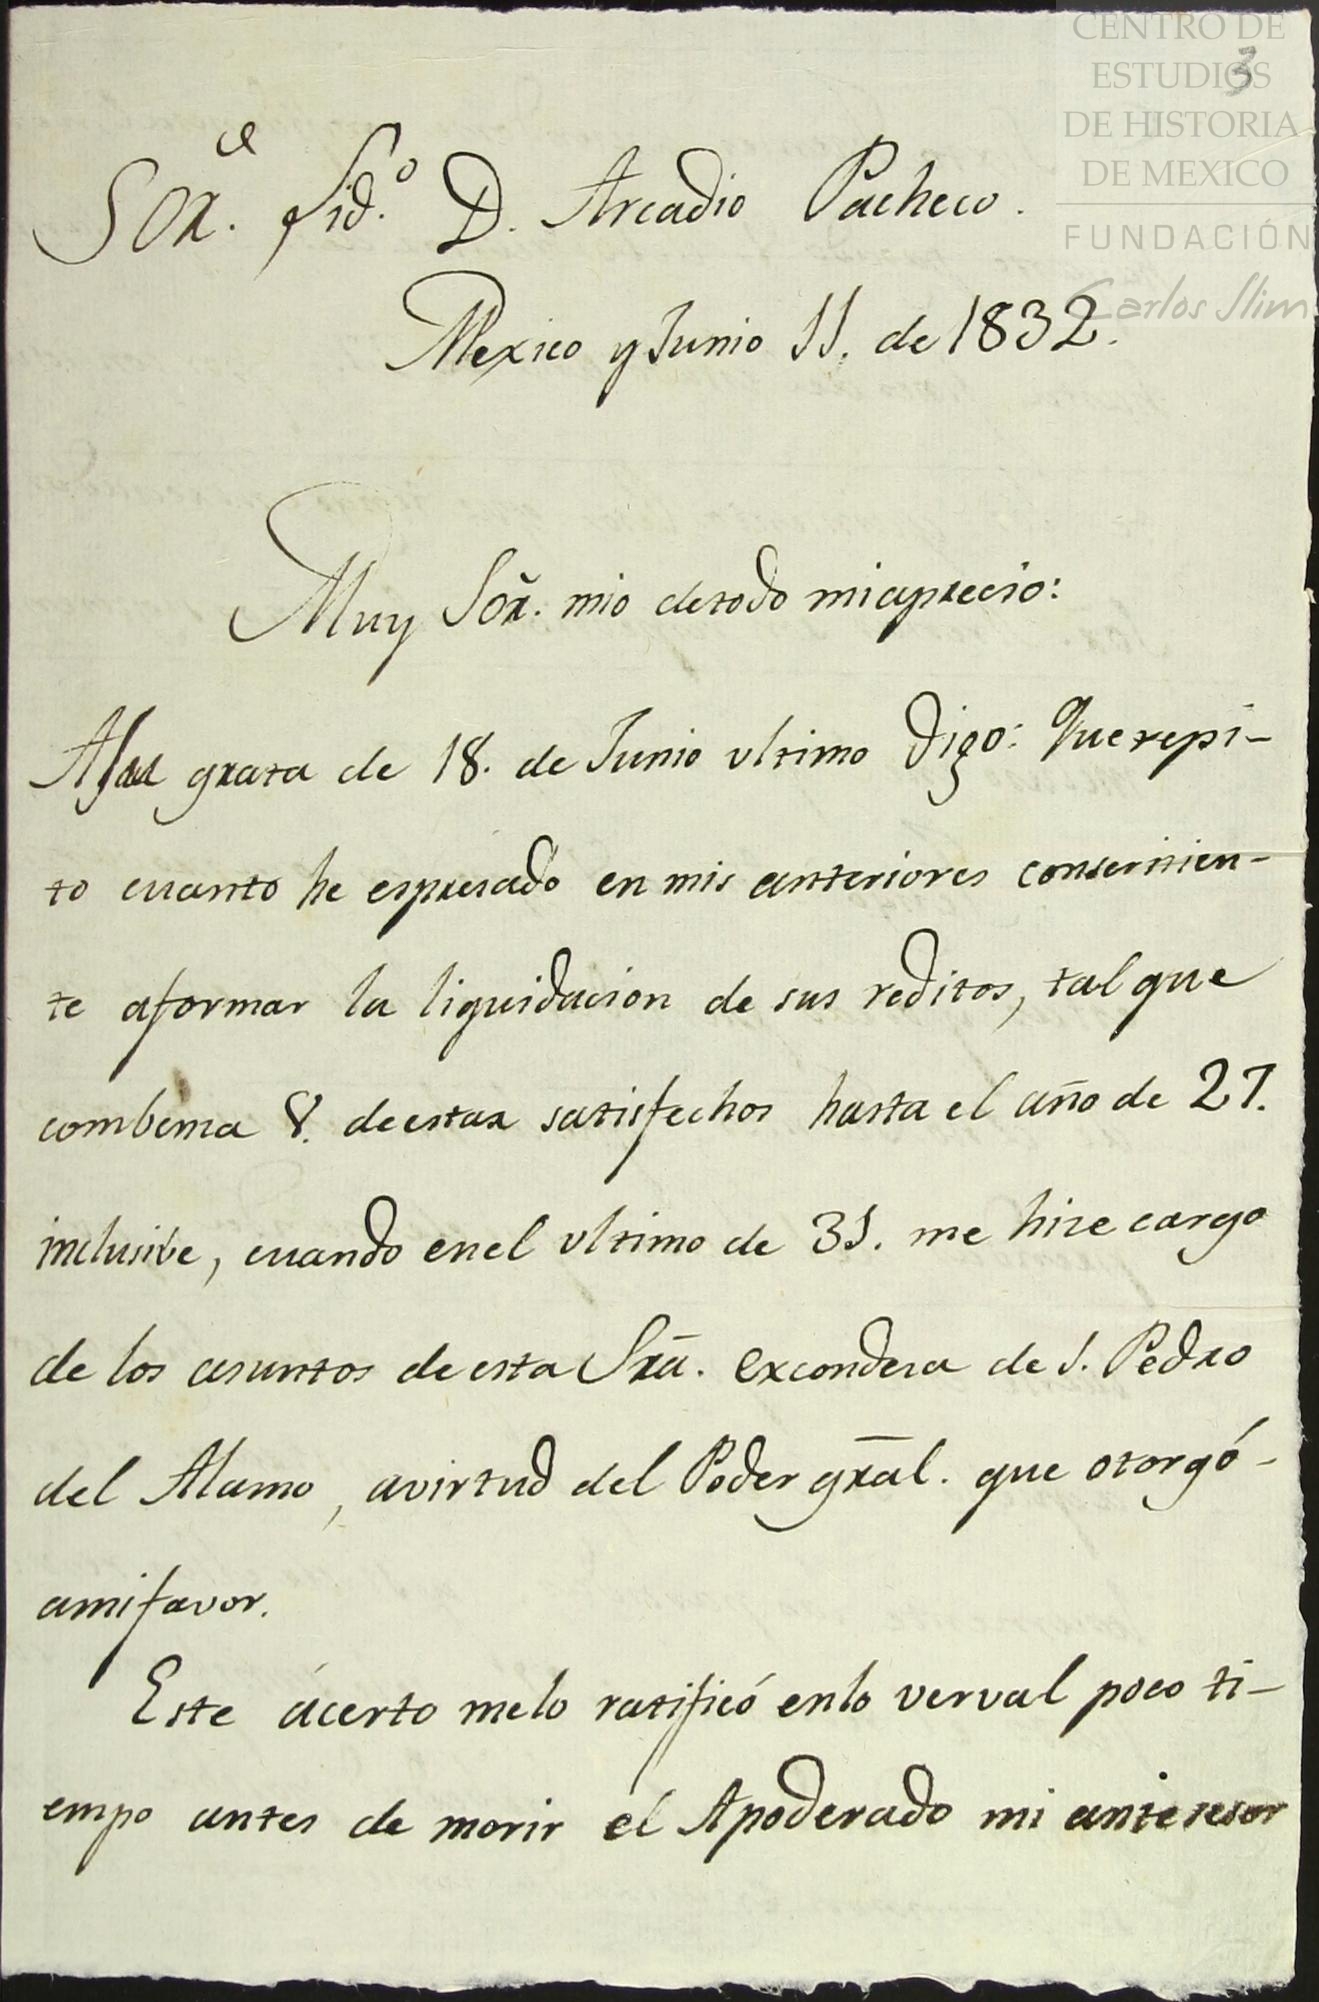 CENTRO DE
ESTUDIOS
DE HISTORIA
DE MEXICO
FUNDACIÓN
Carlos Slim
3
Sor. Lid.º D. Arcadio Pacheco.
Mexico y Junio 11. de 1832.
Muy Sõr. mio detodo miaprecio:
Asu grata de 18. de Junio ultimo digo: Que repi-
to cuanto he espresado en mis anteriores consernien-
te aformar la liquidacion de sus reditos, tal que
combenia V. deestar satisfechos hasta el año de 27.
inclusibe, cuando enel ultimo de 31. me hize cargo
de los asuntos deesta Srã. excondesa de S. Pedro
del Alamo, avirtud del Poder gral. que otorgó-
amifavor.
Este ácerto melo ratificó enlo verval poco ti-
empo antes de morir el Apoderado mi antesesor